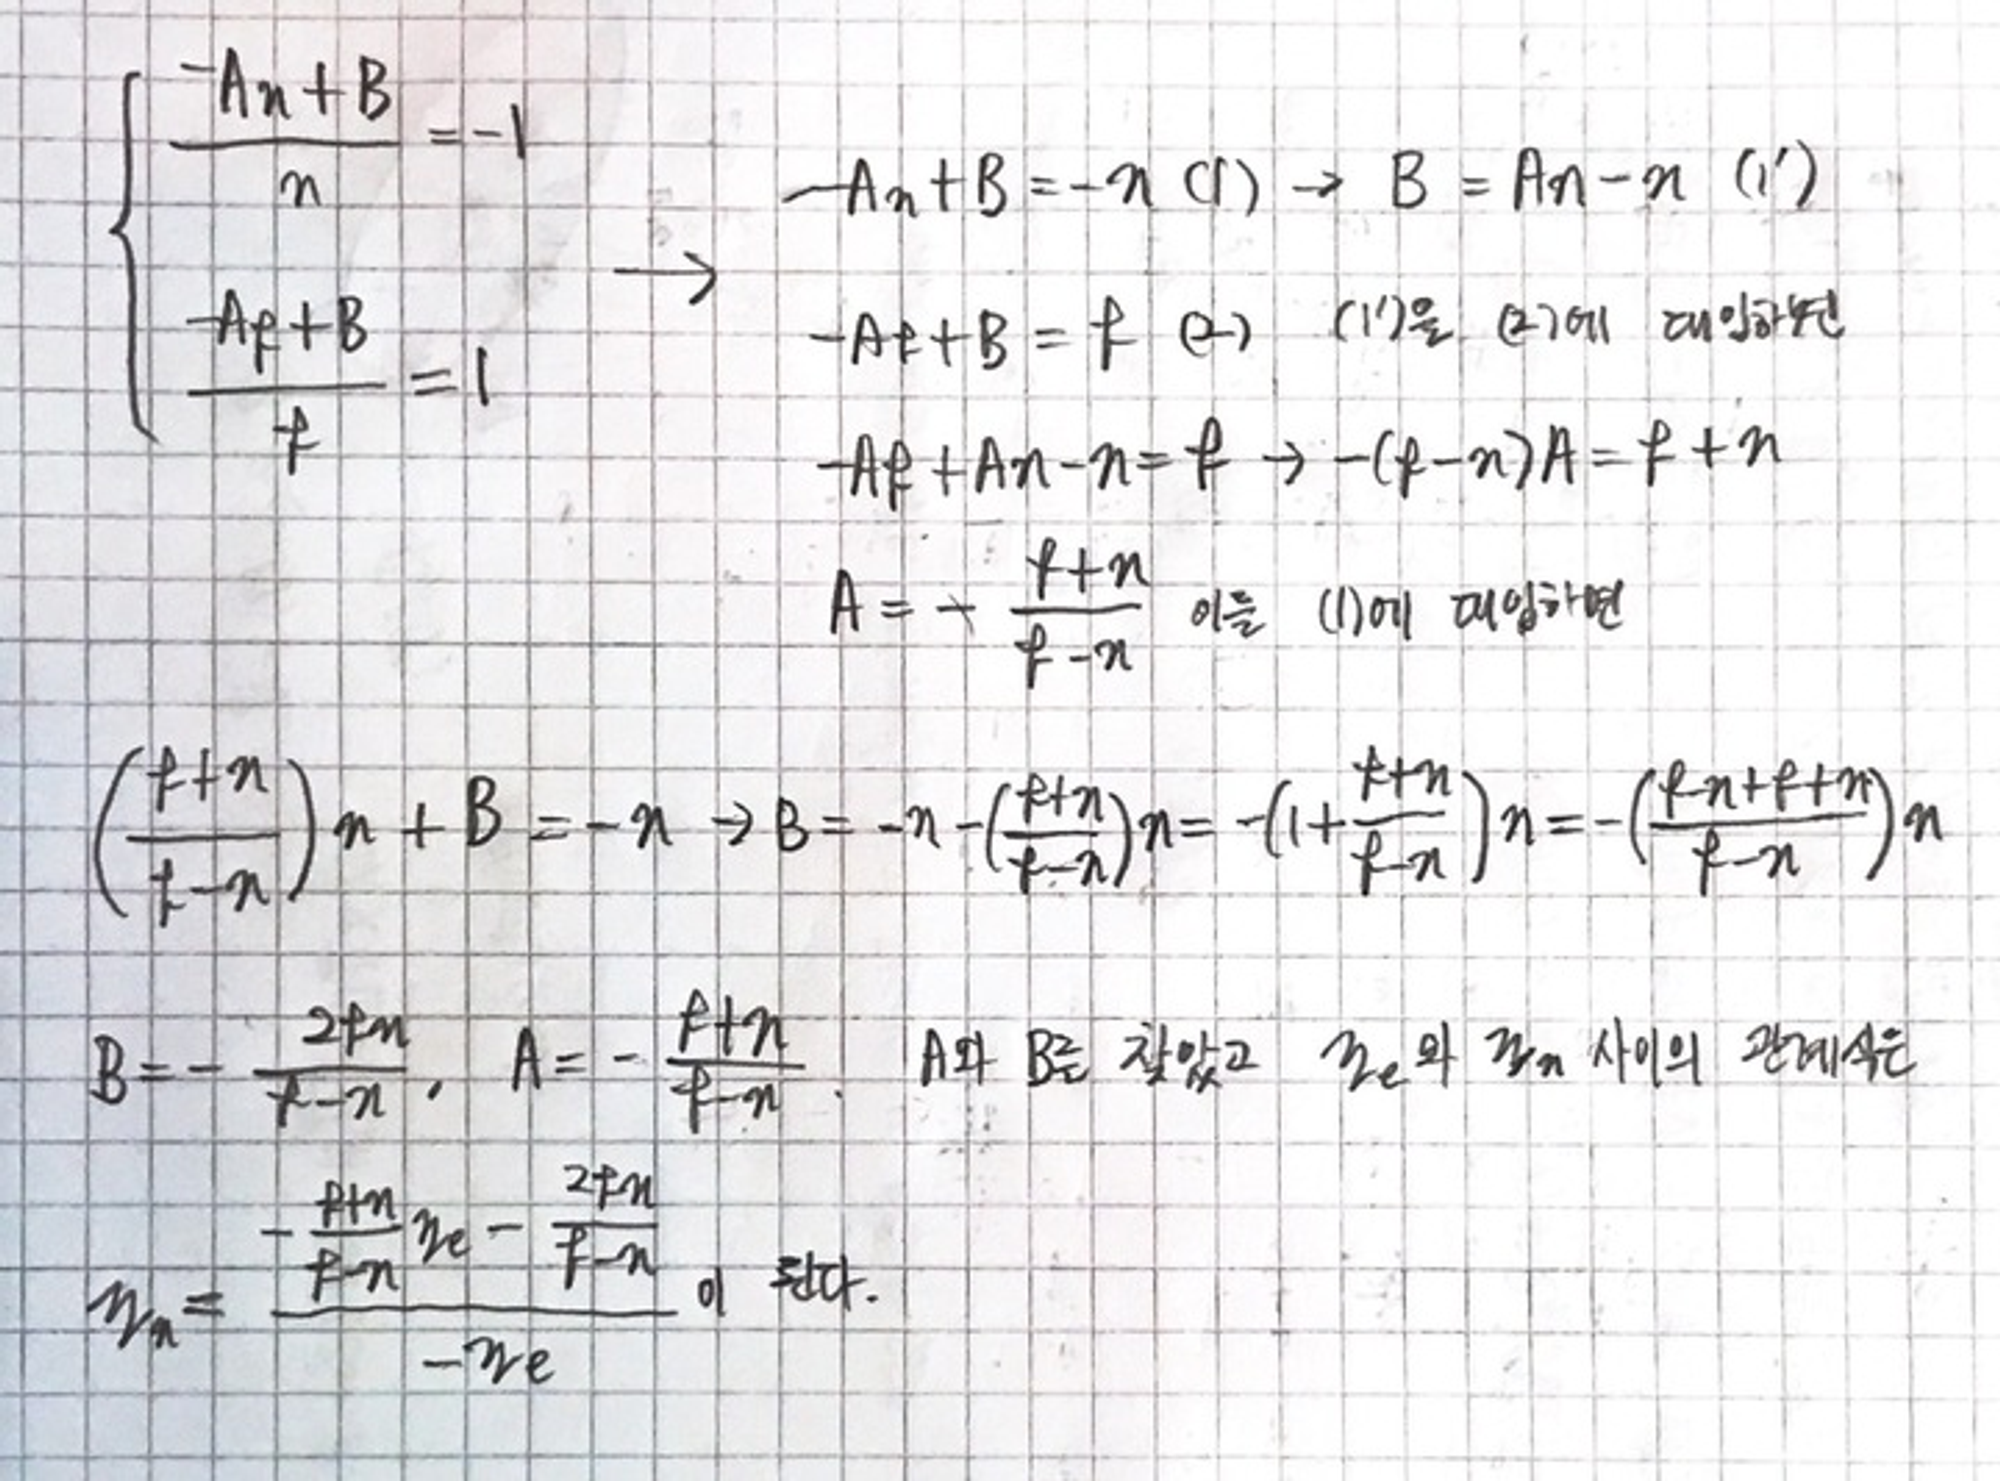 { (-An+B)/n = -1
(-Af+B)/f = 1
→
-An+B = -n (1) → B = An-n (1')
-Af+B = f (2) (1')을 (2)에 대입하면
-Af+An-n = f → -(f-n)A = f+n
A = - (f+n)/(f-n) 이를 (1)에 대입하면
((f+n)/(f-n))n + B = -n → B = -n-((f+n)/(f-n))n = -(1+(f+n)/(f-n))n = -((f-n+f+n)/(f-n))n
B = - 2fn/(f-n), A = - (f+n)/(f-n). A와 B를 찾았고 z_e와 z_n 사이의 관계식은
z_n = (-(f+n)/(f-n) z_e - 2fn/(f-n))/(-z_e) 이 된다.